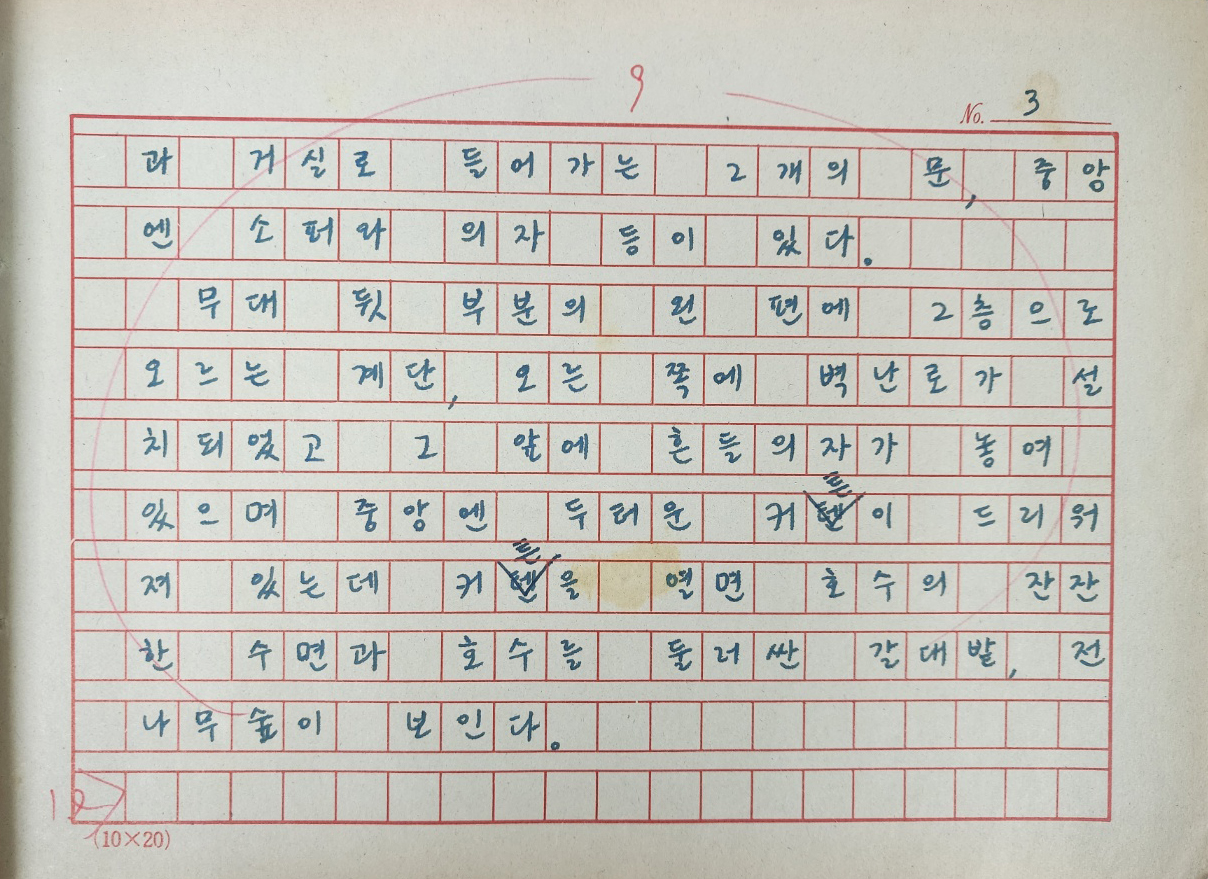 9
No. 3
과 거실로 들어가는 2개의 문, 중앙
엔 소퍼와 의자 등이 있다.
무대 뒷 부분의 왼 편에 2층으로
오르는 계단, 오른 쪽에 벽난로가 설
치되었고 그 앞에 흔들의자가 놓여
있으며 중앙엔 두터운 커튼이 드리워
져 있는데 커튼을 열면 호수의 잔잔
한 수면과 호수를 둘러싼 갈대밭, 전
나무숲이 보인다.
(10×20)